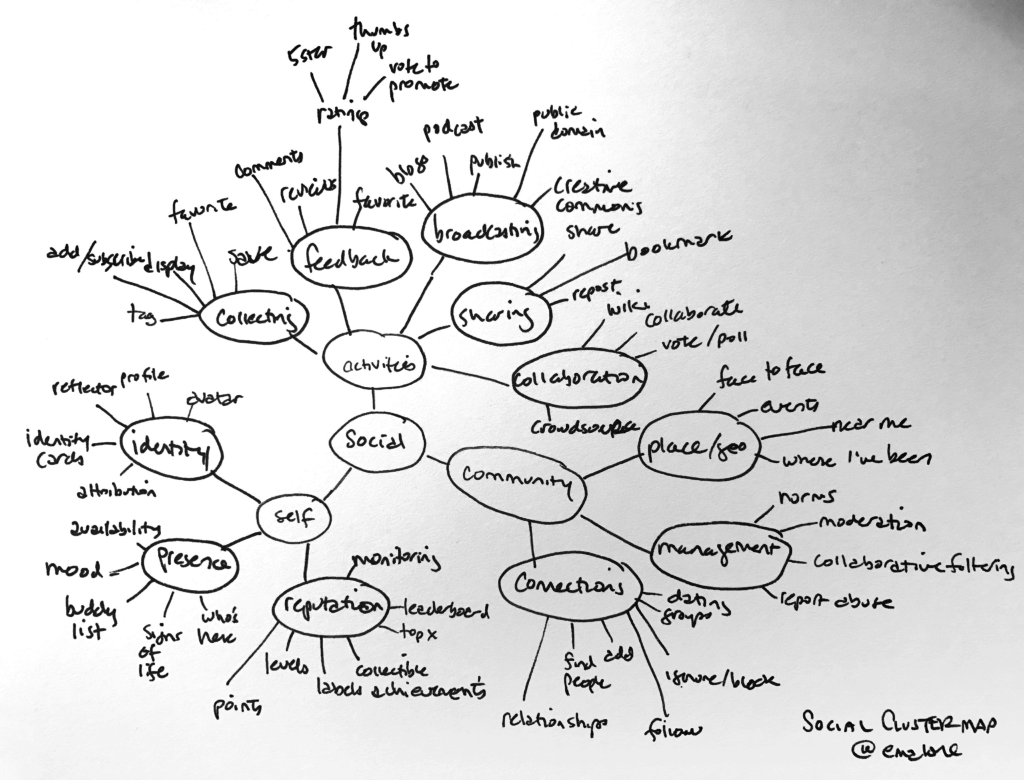 thumbs
up
5 star
vote to
promote
ratings
public
domain
podcast
publish
blog
comments
reviews
favorite
creative
commons
broadcasting
favorite
share
feedback
save
bookmark
add/subscribe
display
tag
collecting
sharing
repost
wiki
collaborate
vote/poll
activities
collaboration
crowdsource
face to face
reflector
profile
avatar
events
near me
identity
cards
identity
social
place/geo
where I've been
attribution
community
norms
self
availability
moderation
presence
monitoring
management
collaborative filtering
mood
connections
reputation
leaderboard
dating
groups
report abuse
buddy
list
who's
here
top x
signs
of
life
levels
collectible
labels
achievements
find
people
add
ignore/block
points
relationships
follow
SOCIAL CLUSTER MAP
@emalone